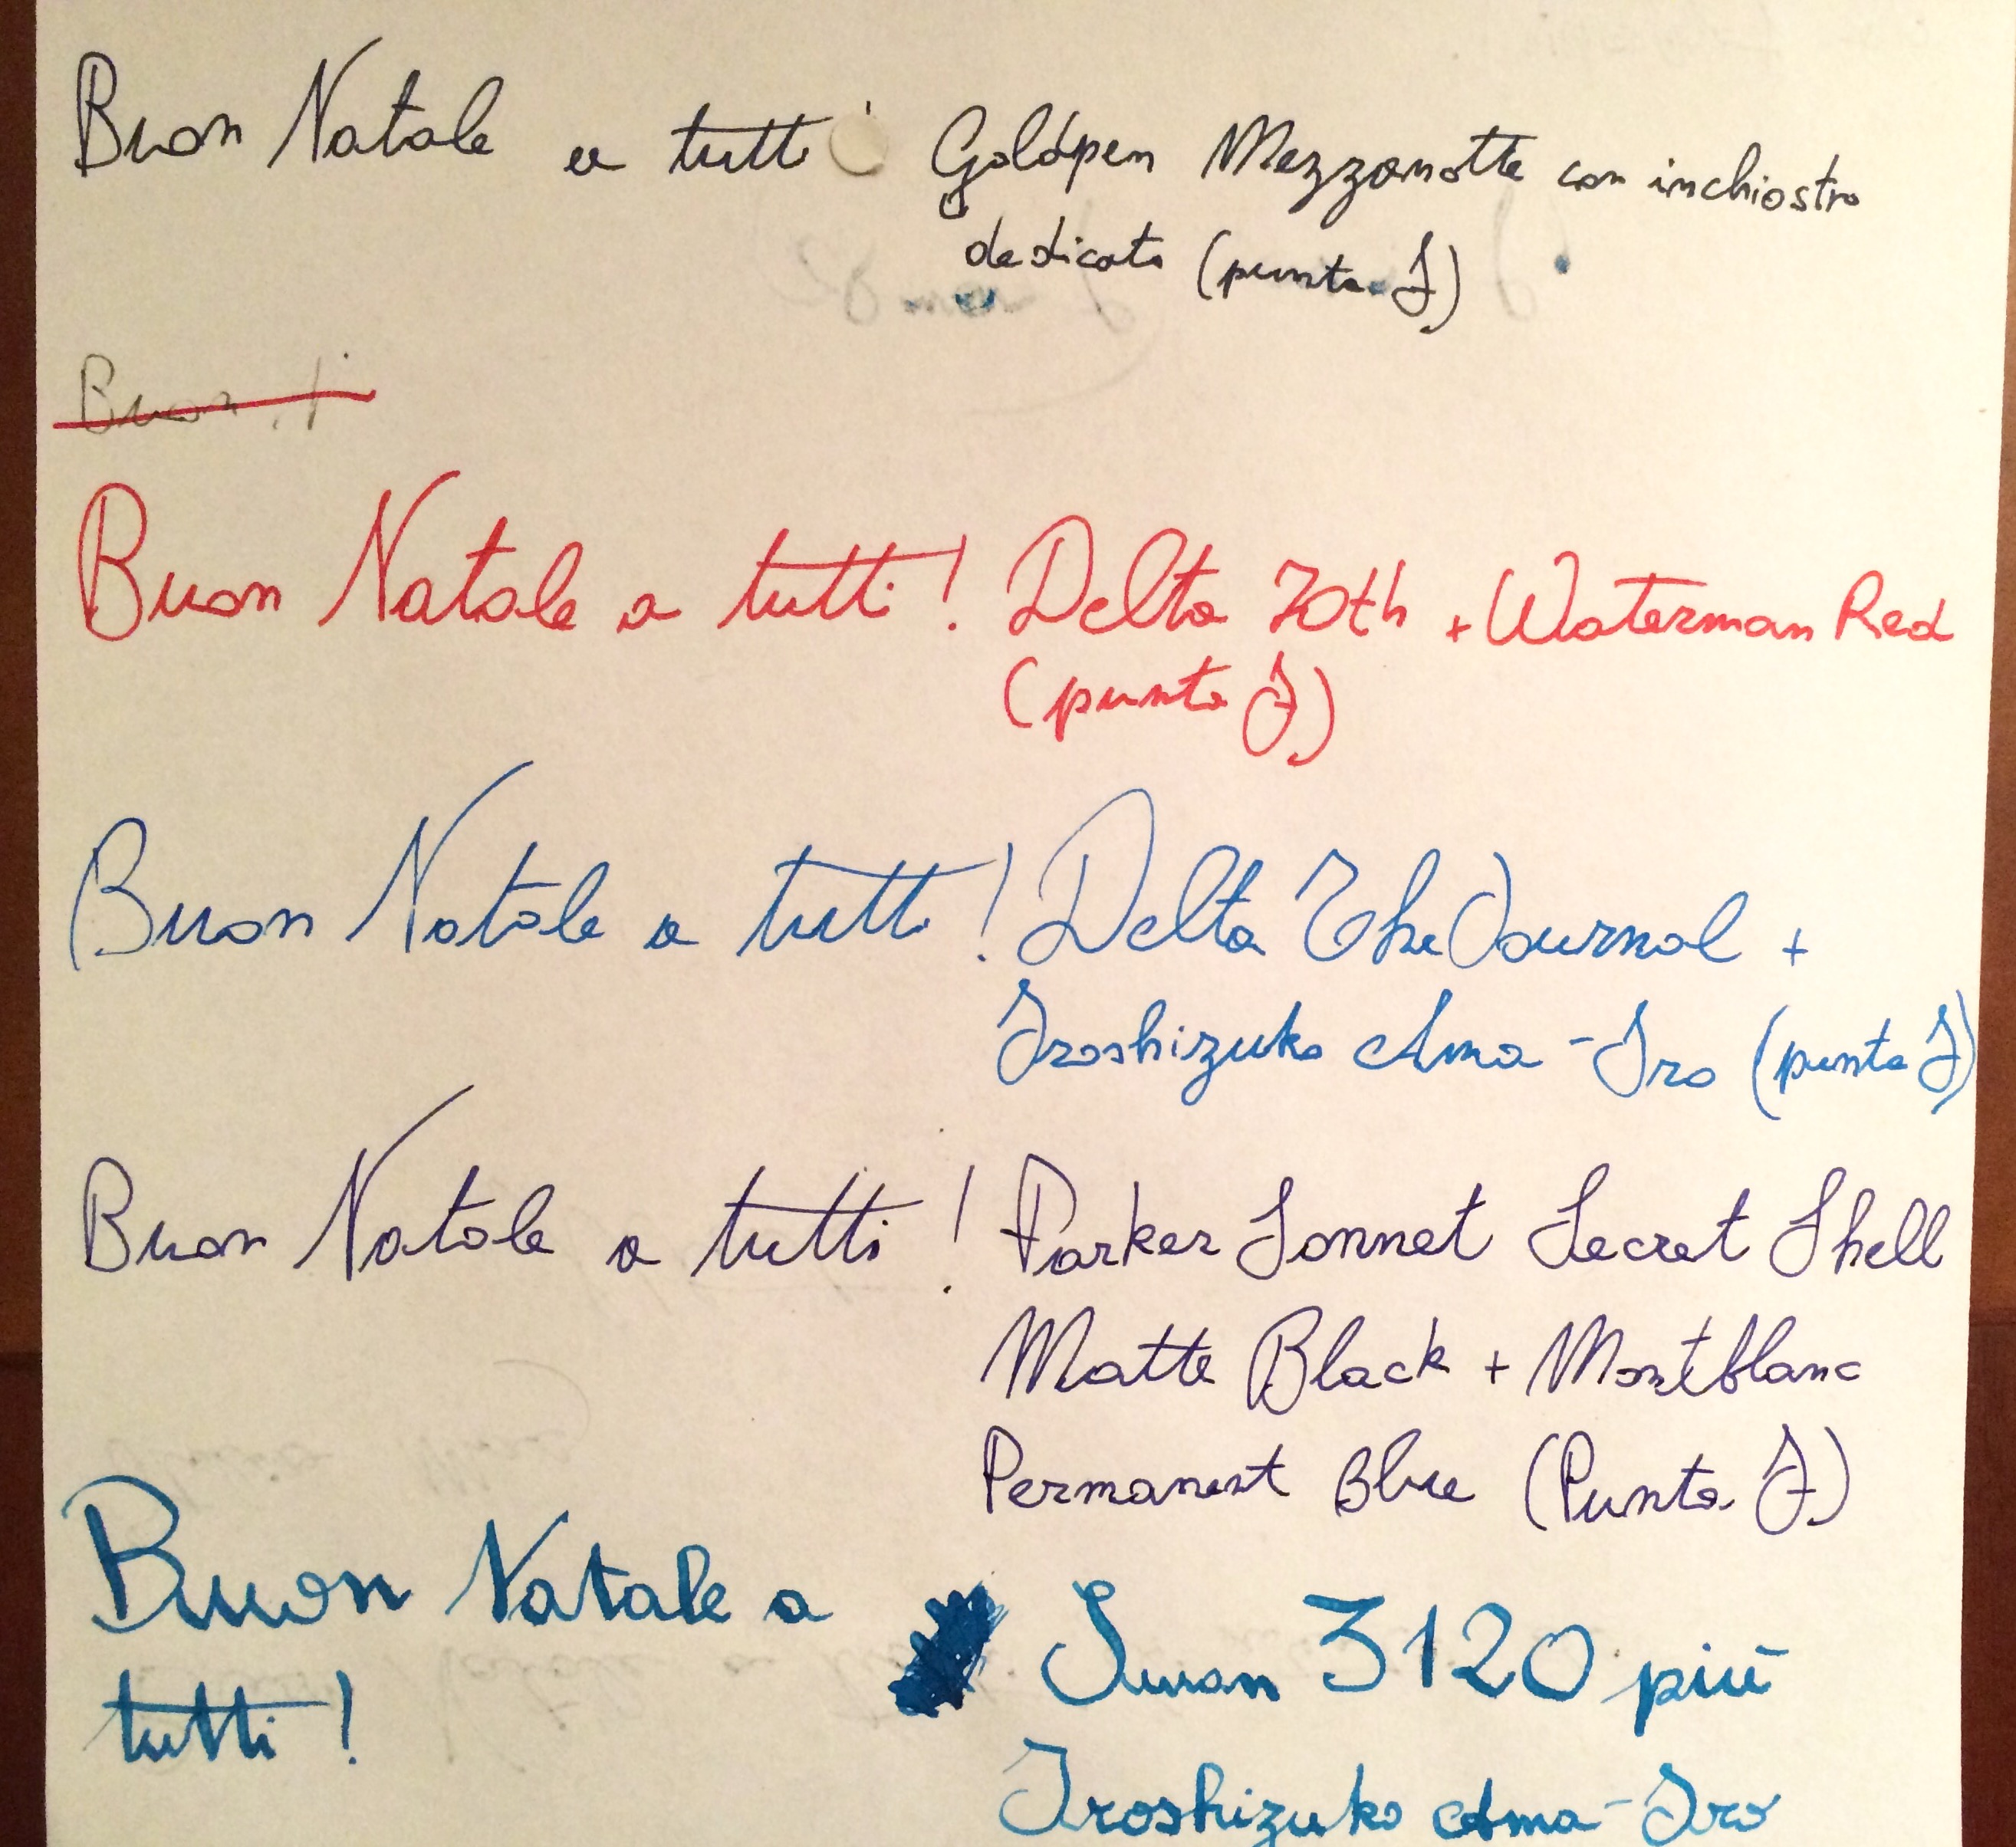 Buon Natale a tutti Goldpen Mezzanotte con inchiostro
dedicato (punta F)
Buon
Buon Natale a tutti! Delta 70th + Waterman Red
(punta F)
Buon Natale a tutti! Delta The Journal +
Iroshizuko Ama-Iro (punta F)
Buon Natale a tutti! Parker Sonnet Secret Shell
Matte Black + Montblanc
Permanent Blue (Punta F)
Buon Natale a
tutti!
3120 più
Iroshizuko Ama-Iro